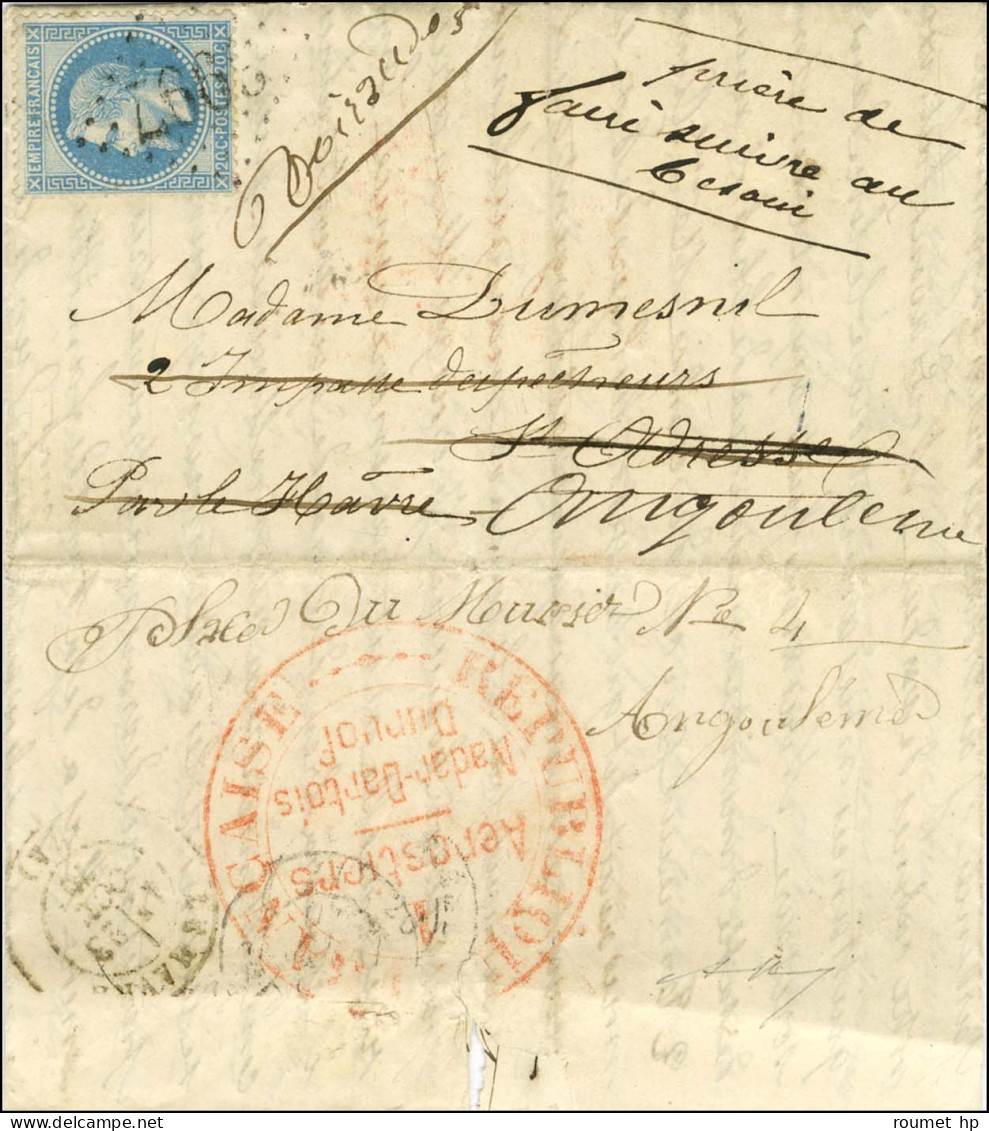 EMPIRE FRANÇAIS
20C·POSTES·20C
prière de
faire suivre au
besoin
Madame Dumesnil
2 Impasse des pêcheurs
St Adresse
Par le Havre Angoulême
Place Du Murier No 4
Angoulême
RÉPUBLIQUE CAISE
Aérostiers
Nadar-Dartois
Duruof
roumet hp